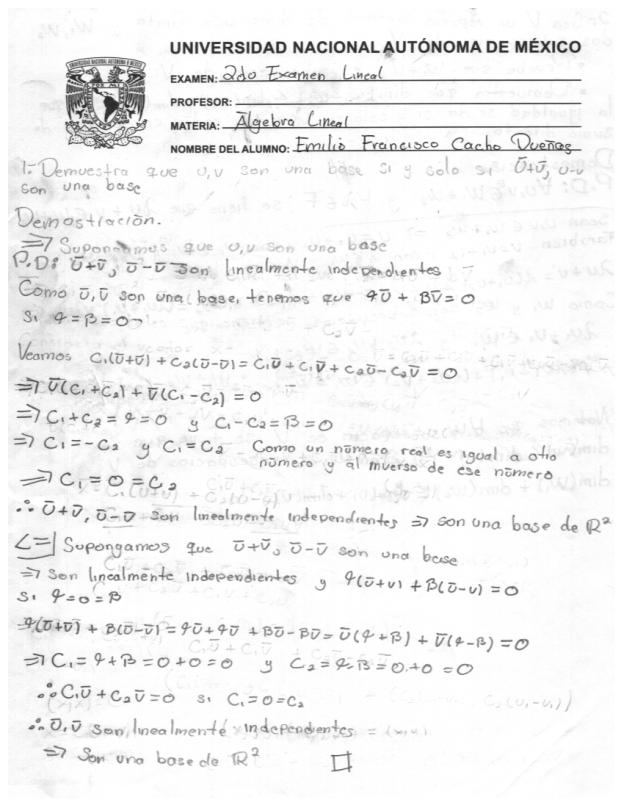 UNIVERSIDAD NACIONAL AUTÓNOMA DE MÉXICO
EXAMEN: 2do Examen Lineal
PROFESOR:
MATERIA: Álgebra Lineal
NOMBRE DEL ALUMNO: Emilio Francisco Cacho Dueñas
1.- Demuestra que u,v son una base si y solo si ū+v̄, u-v
son una base
Demostración.
=> Supongamos que u,v son una base
P.D: ū+v̄, ū-v̄ son linealmente independientes
Como ū,v̄ son una base, tenemos que αū + βv̄ = 0
si α=β=0
Veamos C₁(ū+v̄) + C₂(ū-v̄) = C₁ū + C₁v̄ + C₂ū - C₂v̄ = 0
=> ū(C₁+C₂) + v̄(C₁-C₂) = 0
=> C₁+C₂ = α=0 y C₁-C₂=β=0
=> C₁=-C₂ y C₁=C₂ Como un número real es igual a otro
número y al inverso de ese número
=> C₁=0=C₂
∴ ū+v̄, ū-v̄ son linealmente independientes => son una base de ℝ²
<=| Supongamos que ū+v̄, ū-v̄ son una base
=> son linealmente independientes y α(ū+v) + β(ū-v) = 0
si α=0=β
α(ū+v̄) + β(ū-v̄) = αū+αv̄ + βū-βv̄ = ū(α+β) + v̄(α-β) = 0
=> C₁=α+β=0+0=0 y C₂=α-β=0+0=0
∴ C₁ū+C₂v̄=0 si C₁=0=C₂
∴ ū,v̄ son linealmente independientes
=> Son una base de ℝ² □